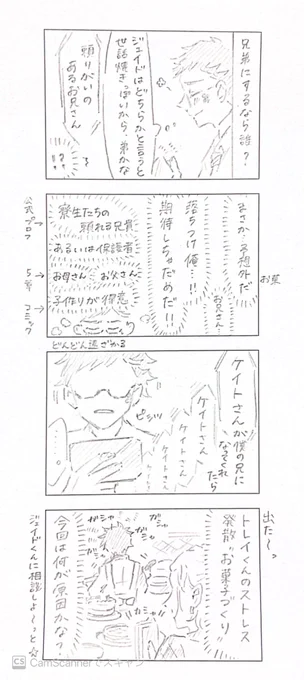 兄弟にするなら誰？
ジェイドはどちらかと言うと
世話焼きっぽいから、弟かな
頼りがいの
あるお兄さん
まさか…予想外だ
お兄さん…
落ちつけ俺…!!
期待しちゃだめだ!!
公式プロフ→
寮生たちの
頼れる兄貴
あるいは保護者
5章→
お母さん
お父さん
コミック→
子作りが得意
どんどん遠ざかる
ケイトさんが僕の兄に
なってくれ
たら
ケイトさん
ケイトさん
ケイトさん
ピシッ
出た〜っ
トレイくんのストレス
発散"お菓子づくり"
ガシャ
ガシャ
ガシャ
カシャ
今回は何が原因かな？
ジェイドくんに相談しよ〜っと☆
CS CamScannerでスキャン